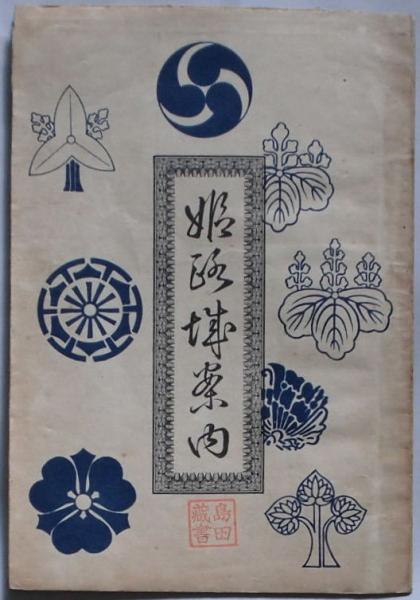 姫路城案内
島田
蔵書